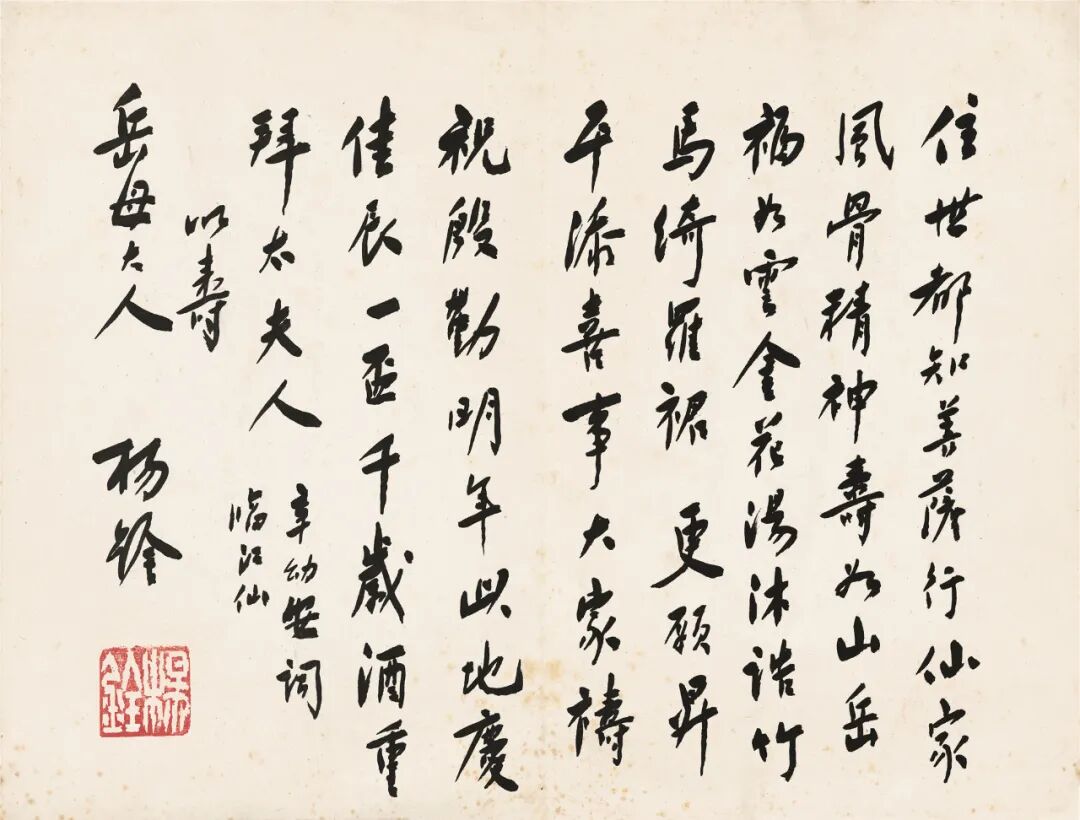 住世都知菩薩行仙家
風骨精神壽如山岳
福如雲金花湯沐誥竹
馬綺羅裙 更願昇
平添喜事大家禱
祝殷勤明年此地慶
佳辰一盃千歲酒重
拜太夫人
辛幼安詞
臨江仙
以壽
岳母大人 楊銓
楊銓